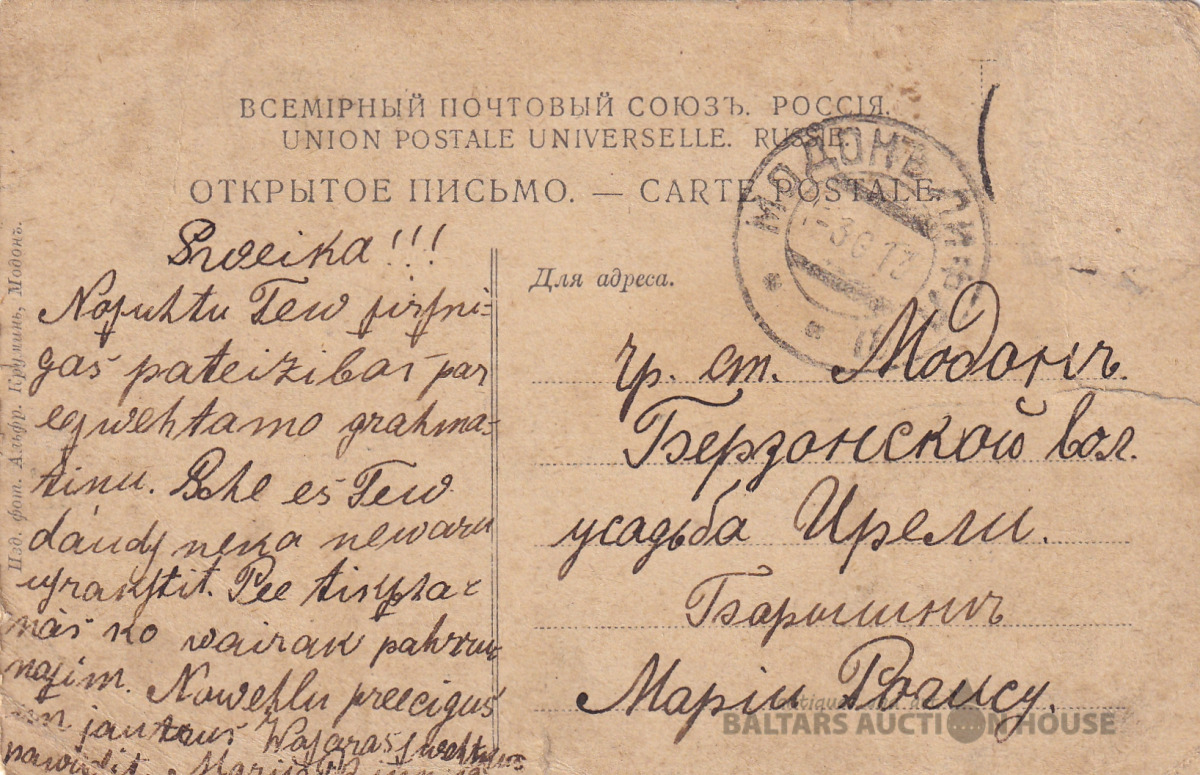 ВСЕМІРНЫЙ ПОЧТОВЫЙ СОЮЗЪ. РОССІЯ.
UNION POSTALE UNIVERSELLE. RUSSIE.
ОТКРЫТОЕ ПИСЬМО. — CARTE POSTALE.
Изд. фот. Альфр. Круминь, Модонъ.
Sweika!!!
Nosuhtu Tew sirsni-
gas pateizibas par
eswehtamo grahma-
tinu. She es Tew
daudz neka newaru
usrakstit. Pee tiksha-
nas ko wairak pahrru-
nasim. Nowehlu preecigus
un jaukus Wasaras swehtkus
pawadit.
Для адреса.
МОДОНЪ
чр. ст. Модонъ.
Берзонской вол.
усадьба Ирели.
Барышнъ
Маріи Рогису.
BALTARS AUCTIONHOUSE